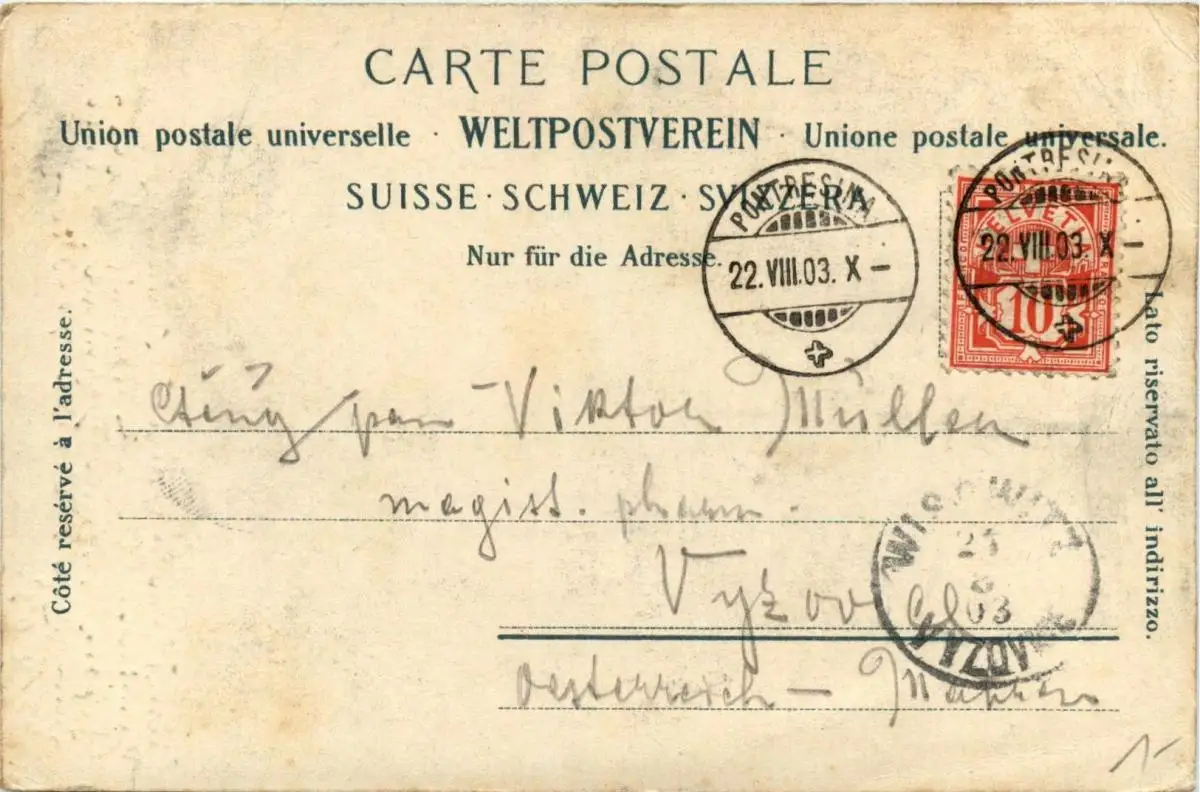 CARTE POSTALE
Union postale universelle · WELTPOSTVEREIN · Unione postale universale.
SUISSE · SCHWEIZ · SVIZZERA
Nur für die Adresse.
PONTRESINA
22.VIII.03. X –
PONTRESINA
22.VIII.03. X –
HELVETIA
10
Côté resérvé à l'adresse.
Lato riservato all' indirizzo.
pan Viktor Müller
magist. pharm.
Vyžkov
Oesterreich – Mähren
WISCHWITZ
03
1-